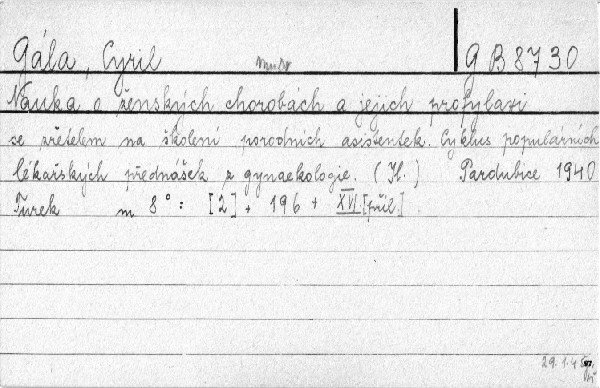 Gála, Cyril MUDr G B 8730
Nauka o ženských chorobách a jejich profylaxi
se zřetelem na školení porodních asistentek. Cyklus populárních
lékařských přednášek z gynaekologie. (Il.) Pardubice 1940
Turek m 8°: [2] + 196 + XVI [příl.].
29.1.4